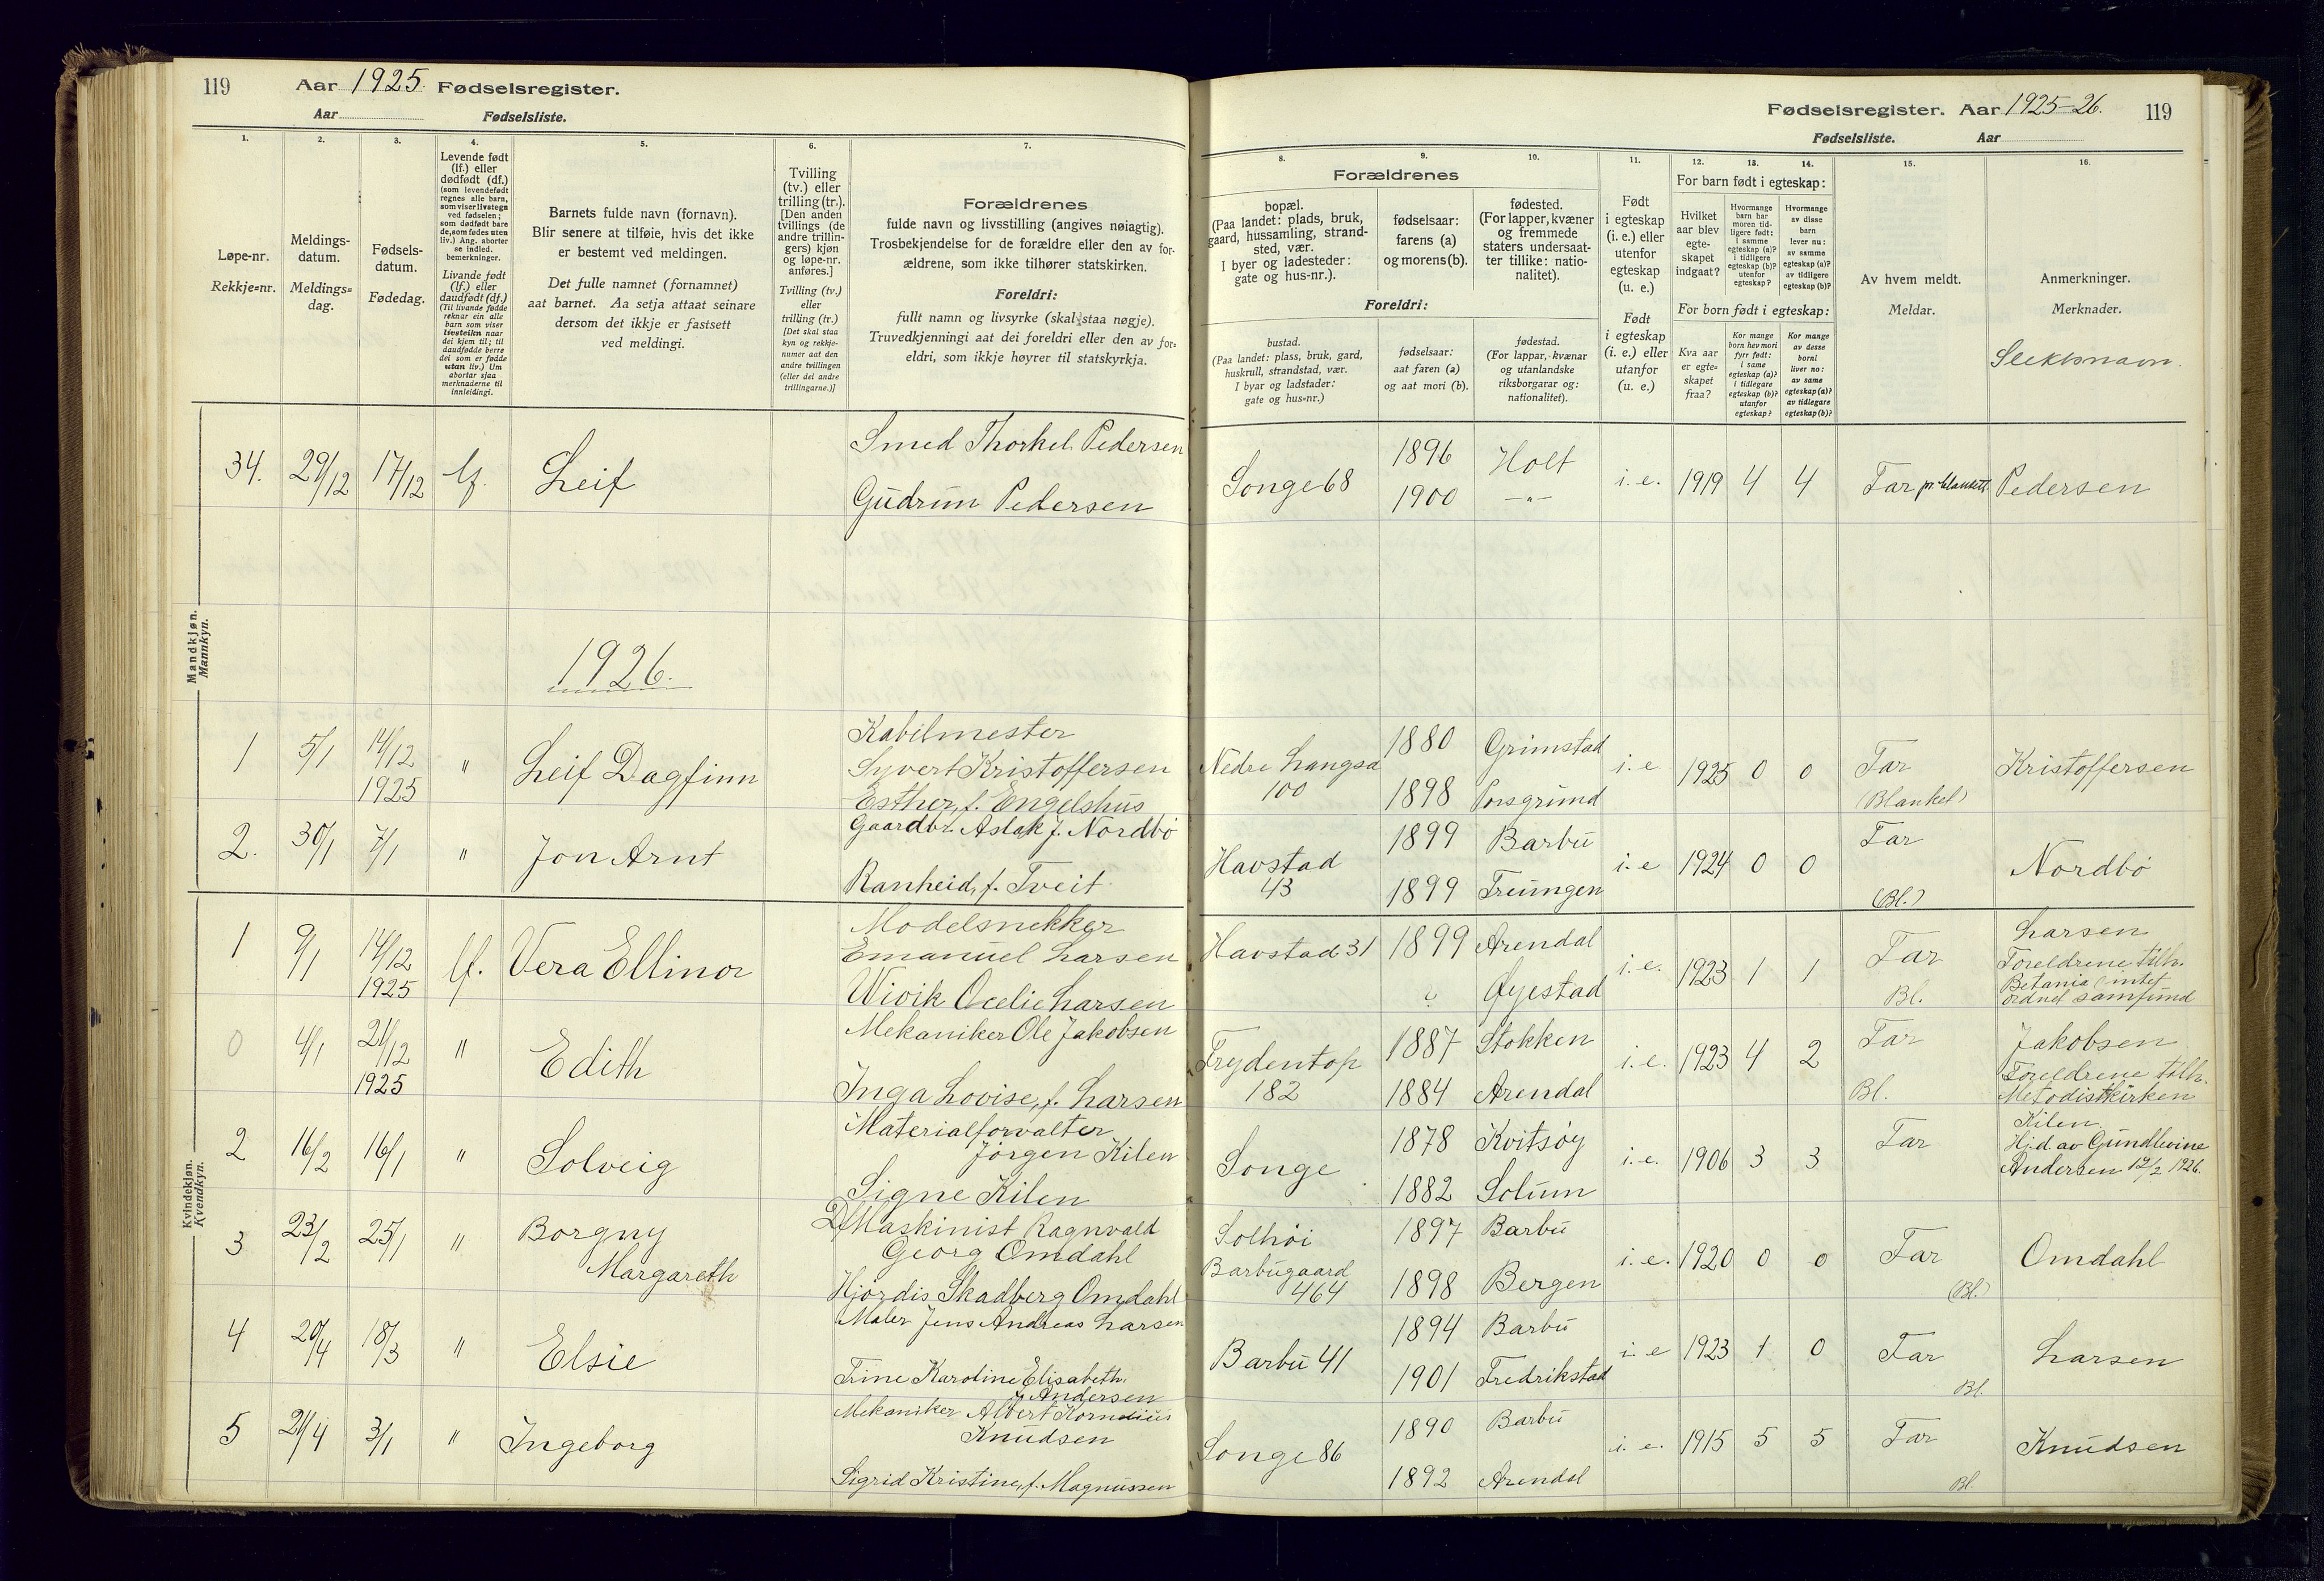 119 Aar 1925. Fødselsregister.
Aar Fødselsliste.
1. 2. 3. 4. 5. 6. 7.
Løpe-nr.
Rekkje=nr.
Meldings-
datum.
Meldings=
dag.
Fødsels-
datum.
Fødedag.
Levende født
(lf.) eller
dødfødt (df.)
(som levendefødt
regnes alle barn,
som viser livstegn
ved fødselen;
som dødfødt bare
de, som fødes uten
liv.) Ang. aborter
se indled.
bemerkninger.
Livande født
(lf.) eller
daudfødt (df.)
(Til livande fødde
reknar ein alle
barn som viser
livsteikn naar
dei kjem til; til
daudfødde berre
dei som er fødde
utan liv.) Um
abortar sjaa
merknaderne til
innleidingi.
Barnets fulde navn (fornavn).
Blir senere at tilføie, hvis det ikke
er bestemt ved meldingen.
Det fulle namnet (fornamnet)
aat barnet. Aa setja attaat seinare
dersom det ikkje er fastsett
ved meldingi.
Tvilling
(tv.) eller
trilling (tr.).
[Den anden
tvillings (de
andre trillin-
gers) kjøn
og løpe-nr.
anføres.]
Tvilling (tv.)
eller
trilling (tr.)
[Det skal staa
kyn og rekkje-
numer aat den
andre tvillingen
(eller dei andre
trillingarne.)]
Forældrenes
fulde navn og livsstilling (angives nøiagtig).
Trosbekjendelse for de forældre eller den av for-
ældrene, som ikke tilhører statskirken.
Foreldri:
fullt namn og livsyrke (skal staa nøgje).
Truvedkjenningi aat dei foreldri eller den av for=
eldri, som ikkje høyrer til statskyrkja.
Mandkjøn.
Mannkyn.
34. 29/12 17/12 lf. Leif
Smed Thorkel Pedersen
Gudrun Pedersen
1926.
1 5/1 14/12 1925 " Leif Dagfinn
Kabelmester
Syvert Kristoffersen
Esther, f. Engelshus
2. 30/1 7/1 " Jon Arnt
Gaardbr. Aslak J. Nordbö
Ranheid, f. Tveit
Kvindekjøn.
Kvendkyn.
1 9/1 14/12 1925 lf. Vera Ellinor
Modelsnekker
Emanuel Larsen
Wivik Ocelie Larsen
0 4/1 21/12 1925 " Edith
Mekaniker Ole Jakobsen
Inga Lovise, f. Larsen
2 16/2 16/1 " Solveig
Materialforvalter
Jörgen Kilen
Signe Kilen
3 23/2 25/1 " Borgny
Margareth
Maskinist Ragnvald
Georg Omdahl
Hjördis Skadberg Omdahl
4 20/4 18/3 " Elsie
Maler Jens Andreas Larsen
Trine Karoline Elisabeth
f. Andersen
5 21/4 3/1 " Ingeborg
Mekaniker Albert Kornelius
Knudsen
Sigrid Kristine, f. Magnussen
Fødselsregister. Aar 1925-26. 119
Fødselsliste. Aar
8. 9. 10. 11. 12. 13. 14. 15. 16.
Forældrenes
bopæl.
(Paa landet: plads, bruk,
gaard, hussamling, strand-
sted, vær.
I byer og ladesteder:
gate og hus-nr.).
fødselsaar:
farens (a)
og morens (b).
fødested.
(For lapper, kvæner
og fremmede
staters undersaat-
ter tillike: natio-
nalitet).
Foreldri:
bustad.
(Paa landet: plass, bruk, gard,
huskrull, strandstad, vær.
I byar og ladstader:
gate og hus=nr.)
fødselsaar:
aat faren (a)
og aat mori (b).
fødestad.
(For lappar, kvænar
og utanlandske
riksborgarar og:
nationalitet).
Født
i egteskap
(i. e.) eller
utenfor
egteskap
(u. e.)
Født
i egteskap
(i. e.) eller
utanfor
(u. e.)
For barn født i egteskap:
Hvilket
aar blev
egte-
skapet
indgaat?
Hvormange
barn har
moren tid-
ligere født:
i samme
egteskap (a)?
i tidligere
egteskap (b)?
utenfor
egteskap?
Hvormange
av disse
barn
lever nu:
av samme
egteskap (a)?
av tidligere
egteskap (b)?
For born født i egteskap:
Kva aar
er egte=
skapet
fraa?
Kor mange
born hev mori
fyrr født:
i same
egteskap (a)?
i tidlegare
egteskap (b)?
utanfor
egteskap?
Kor mange
av desse
borni
liver no:
av same
egteskap (a)?
av tidlegare
egteskap (b)?
Av hvem meldt.
Meldar.
Anmerkninger.
Merknader.
Slektsnavn.
Songe 68 1896 Holt i. e. 1919 4 4 Far pr. blankett Pedersen
1900 —"—
Nedre Langsæ 100 1880 Grimstad i. e 1925 0 0 Far (Blanket) Kristoffersen
1898 Porsgrund
Havstad 43 1899 Barbu i. e 1924 0 0 Far (Bl.) Nordbö
1899 Treungen
Havstad 31 1899 Arendal i. e. 1923 1 1 Far Bl. Larsen
? Øyestad
Foreldrene tilh.
Betania (intet
ordnet samfund
Frydentop 182 1887 Stokken i. e. 1923 4 2 Far Bl. Jakobsen
1884 Arendal
Foreldrene tilh.
Metodistkirken
Songe 1878 Kvitsøy i. e. 1906 3 3 Far Kilen
1882 Solum
Hj.d. av Gundlevine
Andersen 12/2 1926.
Solhöi
Barbugaard
464
1897 Barbu i. e. 1920 0 0 Far (Bl.) Omdahl
1898 Bergen
Barbu 41 1894 Barbu i. e 1923 1 0 Far Bl. Larsen
1901 Fredrikstad
Songe 86 1890 Barbu i. e. 1915 5 5 Far Bl. Knudsen
1892 Arendal